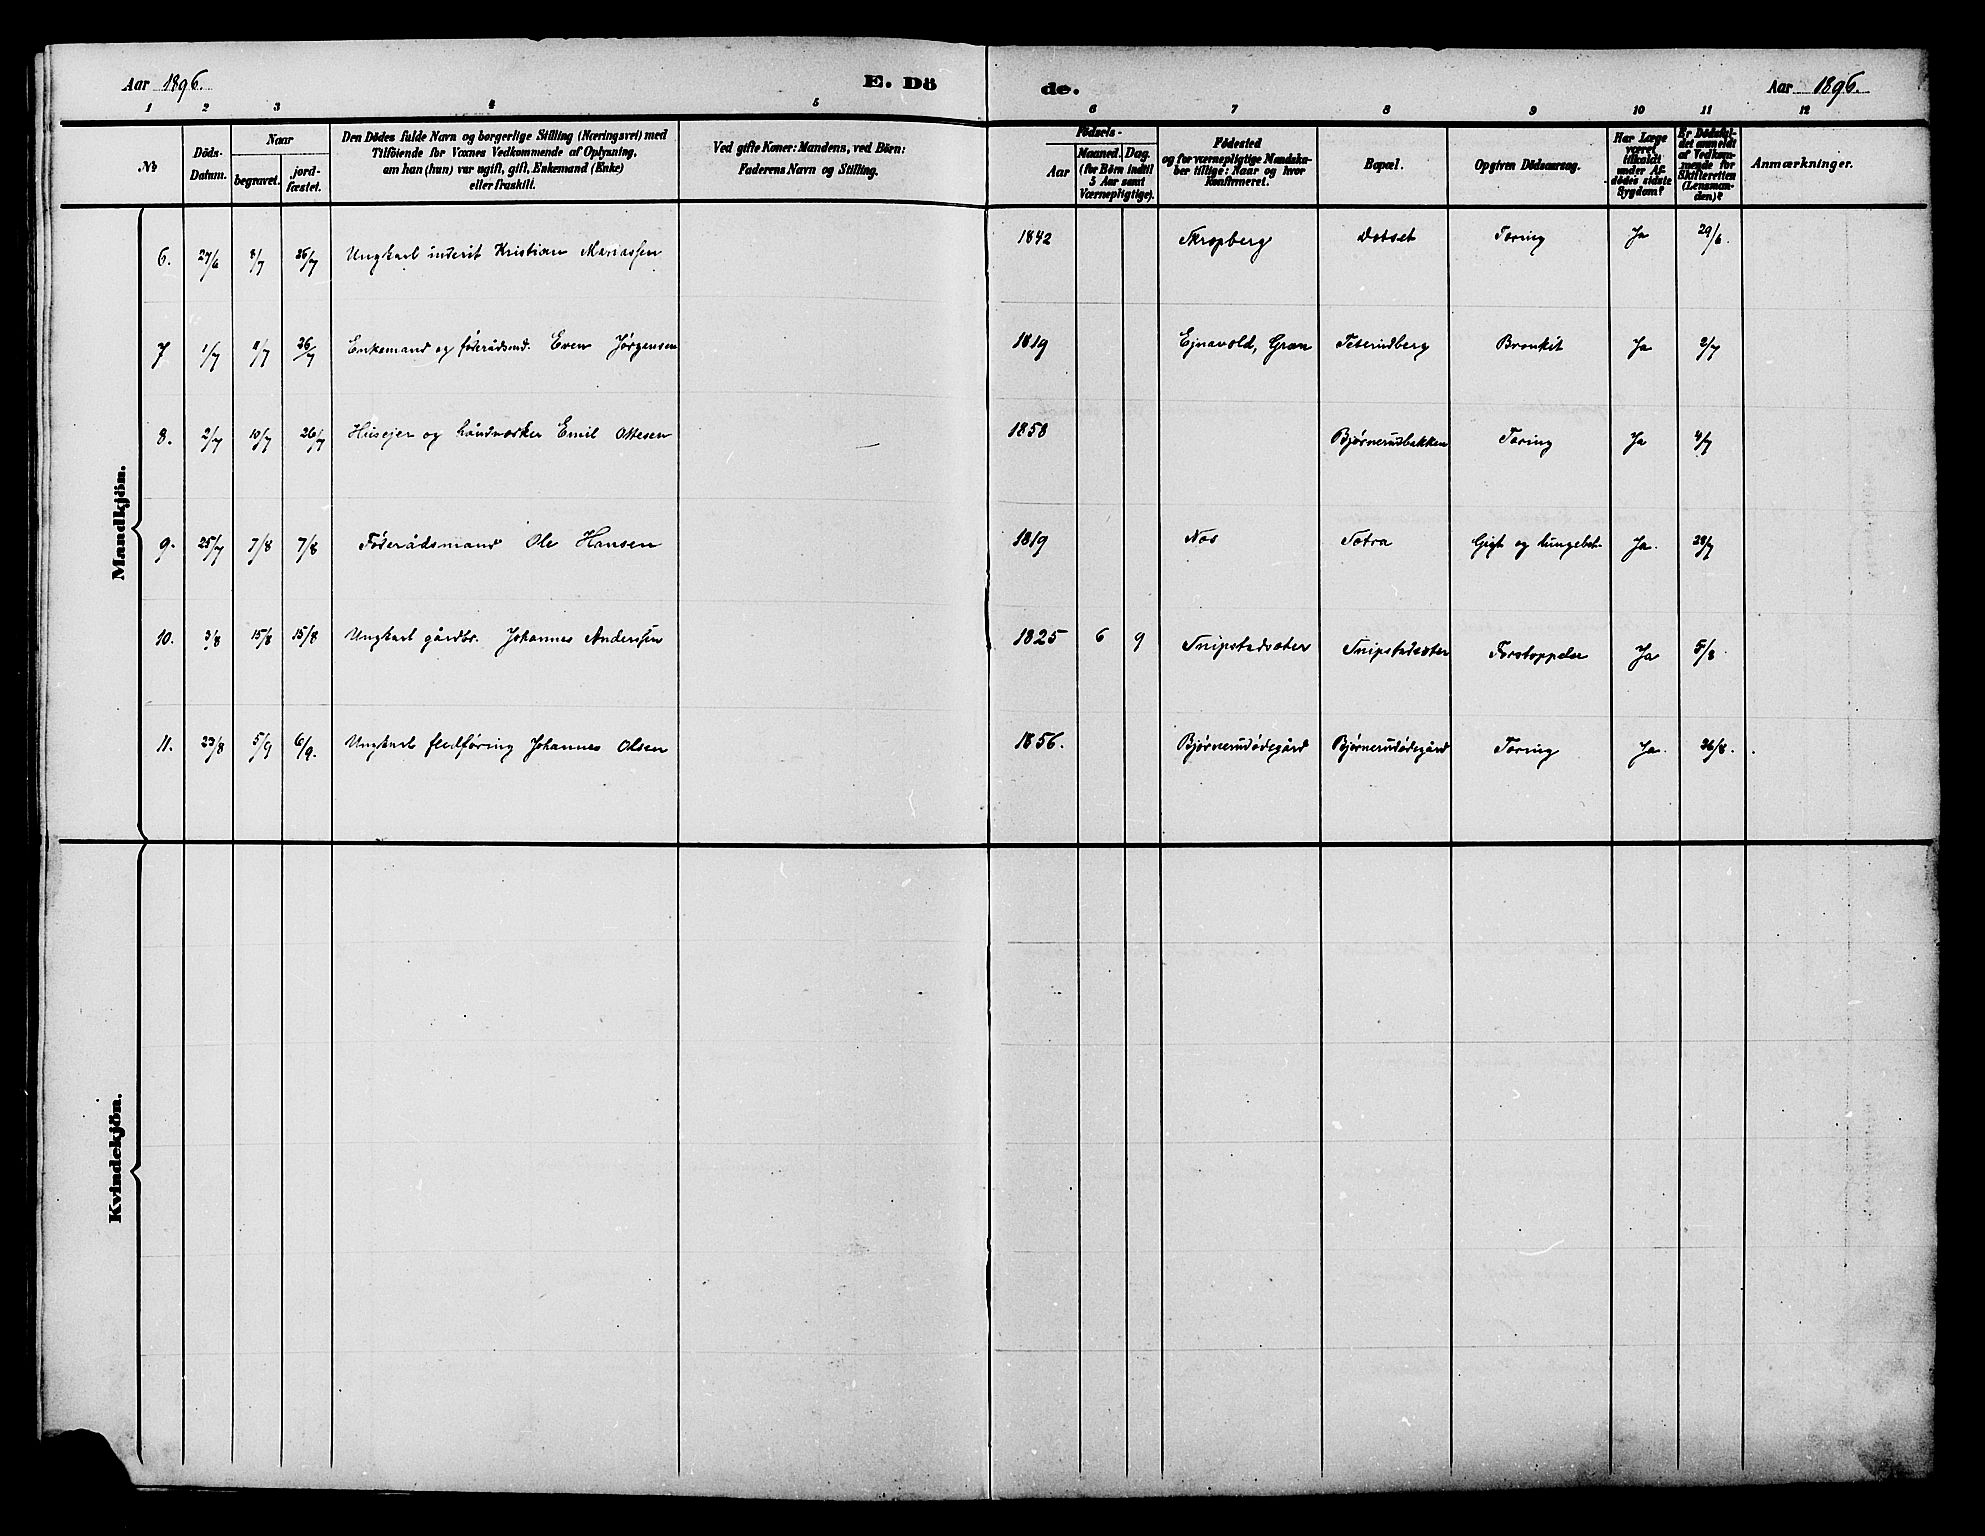 Aar 1896. E. Dö de. Aar 1896.
1 2 3 4 5 6 7 8 9 10 11 12
№
Döds-
Datum.
Naar
begravet.
jord-
fæstet.
Den Dödes fulde Navn og borgerlige Stilling (Næringsvei) med
Tilföiende for Voxnes Vedkommende af Oplysning,
om han (hun) var ugift, gift, Enkemand (Enke)
eller fraskilt.
Ved gifte Koner: Mandens, ved Börn:
Faderens Navn og Stilling.
Födsels-
Aar
Maaned. Dag.
(for Börn indtil
5 Aar samt
Værnepligtige).
Födested
og for værnepligtige Mandska-
ber tillige: Naar og hvor
Konfirmeret.
Bopæl.
Opgiven Dödsaarsag.
Har Læge
været
tilkaldt
under Af-
dödes sidste
Sygdom?
Er Dödsfal-
det anmeldt
af Vedkom-
mende for
Skifteretten
(Lensman-
den)?
Anmærkninger.
Mandkjön.
6. 27/6 8/7 26/7 Ungkarl inderst Kristian Mariassen 1842 Skropberg Dotset Tæring Ja 29/6.
7 1/7 8/7 26/7 Enkemand og föderådsmd. Even Jørgensen 1819 Ejnavold, Gran Teterudberg Bronkit Ja 2/7
8. 2/7 10/7 26/7 Husejer og håndværker Emil Ottesen 1858 Bjørnerudbakken Tæring Ja 4/7
9. 25/7 7/8 7/8 Föderådsmand Ole Hansen 1819 Nøs Totra Gigt og lungebet. Ja. 28/7
10. 3/8 15/8 15/8 Ungkarl gårdbr. Johannes Anderssen 1825 6 9 Snipstadsæter Snipstadsæter Forstoppelse Ja 5/8.
11. 23/8 5/9 6/9. Ungkarl fledföring Johannes Olsen 1856. Bjørnerudødegård Bjørnerudødegård Tæring Ja. 26/8.
Kvindekjön.